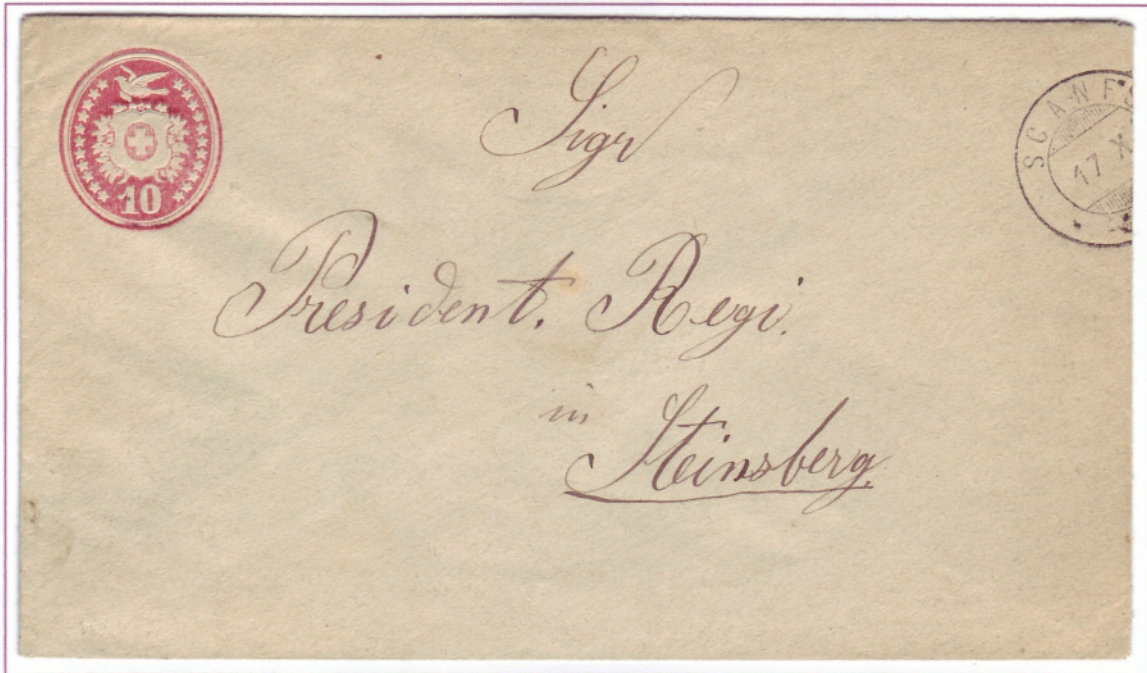 Sigr
President. Regi.
in
Steinsberg.
10
SCANFS
17 X